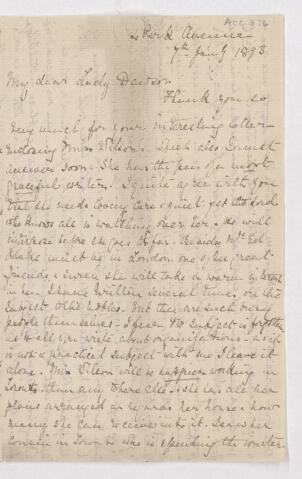 Park Avenue
7th Jany 1893
My dear Lady Dawson
Thank you so
very much for your interesting letter
enclosing Miss Wilson's, which also I must
answer soon. She has the pen of a most
graceful writer. I quite agree with you
that she needs loving care & quiet. yet the Lord
who knows all is watching over her. He will
interpose before she goes too far. Besides Mrs
Blake must be in London one of her great
friends & I wish she will take a warm interest
in her. I have written several times on the
subject. But they are such busy
people themselves. I fear the subject is forgotten
as to all you write about organizations – as it
is not a practical subject with me I leave it
alone. Miss Wilson will be happier working in
Toronto than any where else & she has all her
plans arranged as regards her house & how
many she can receive into it. I saw her
cousin in Toronto who is spending the winter